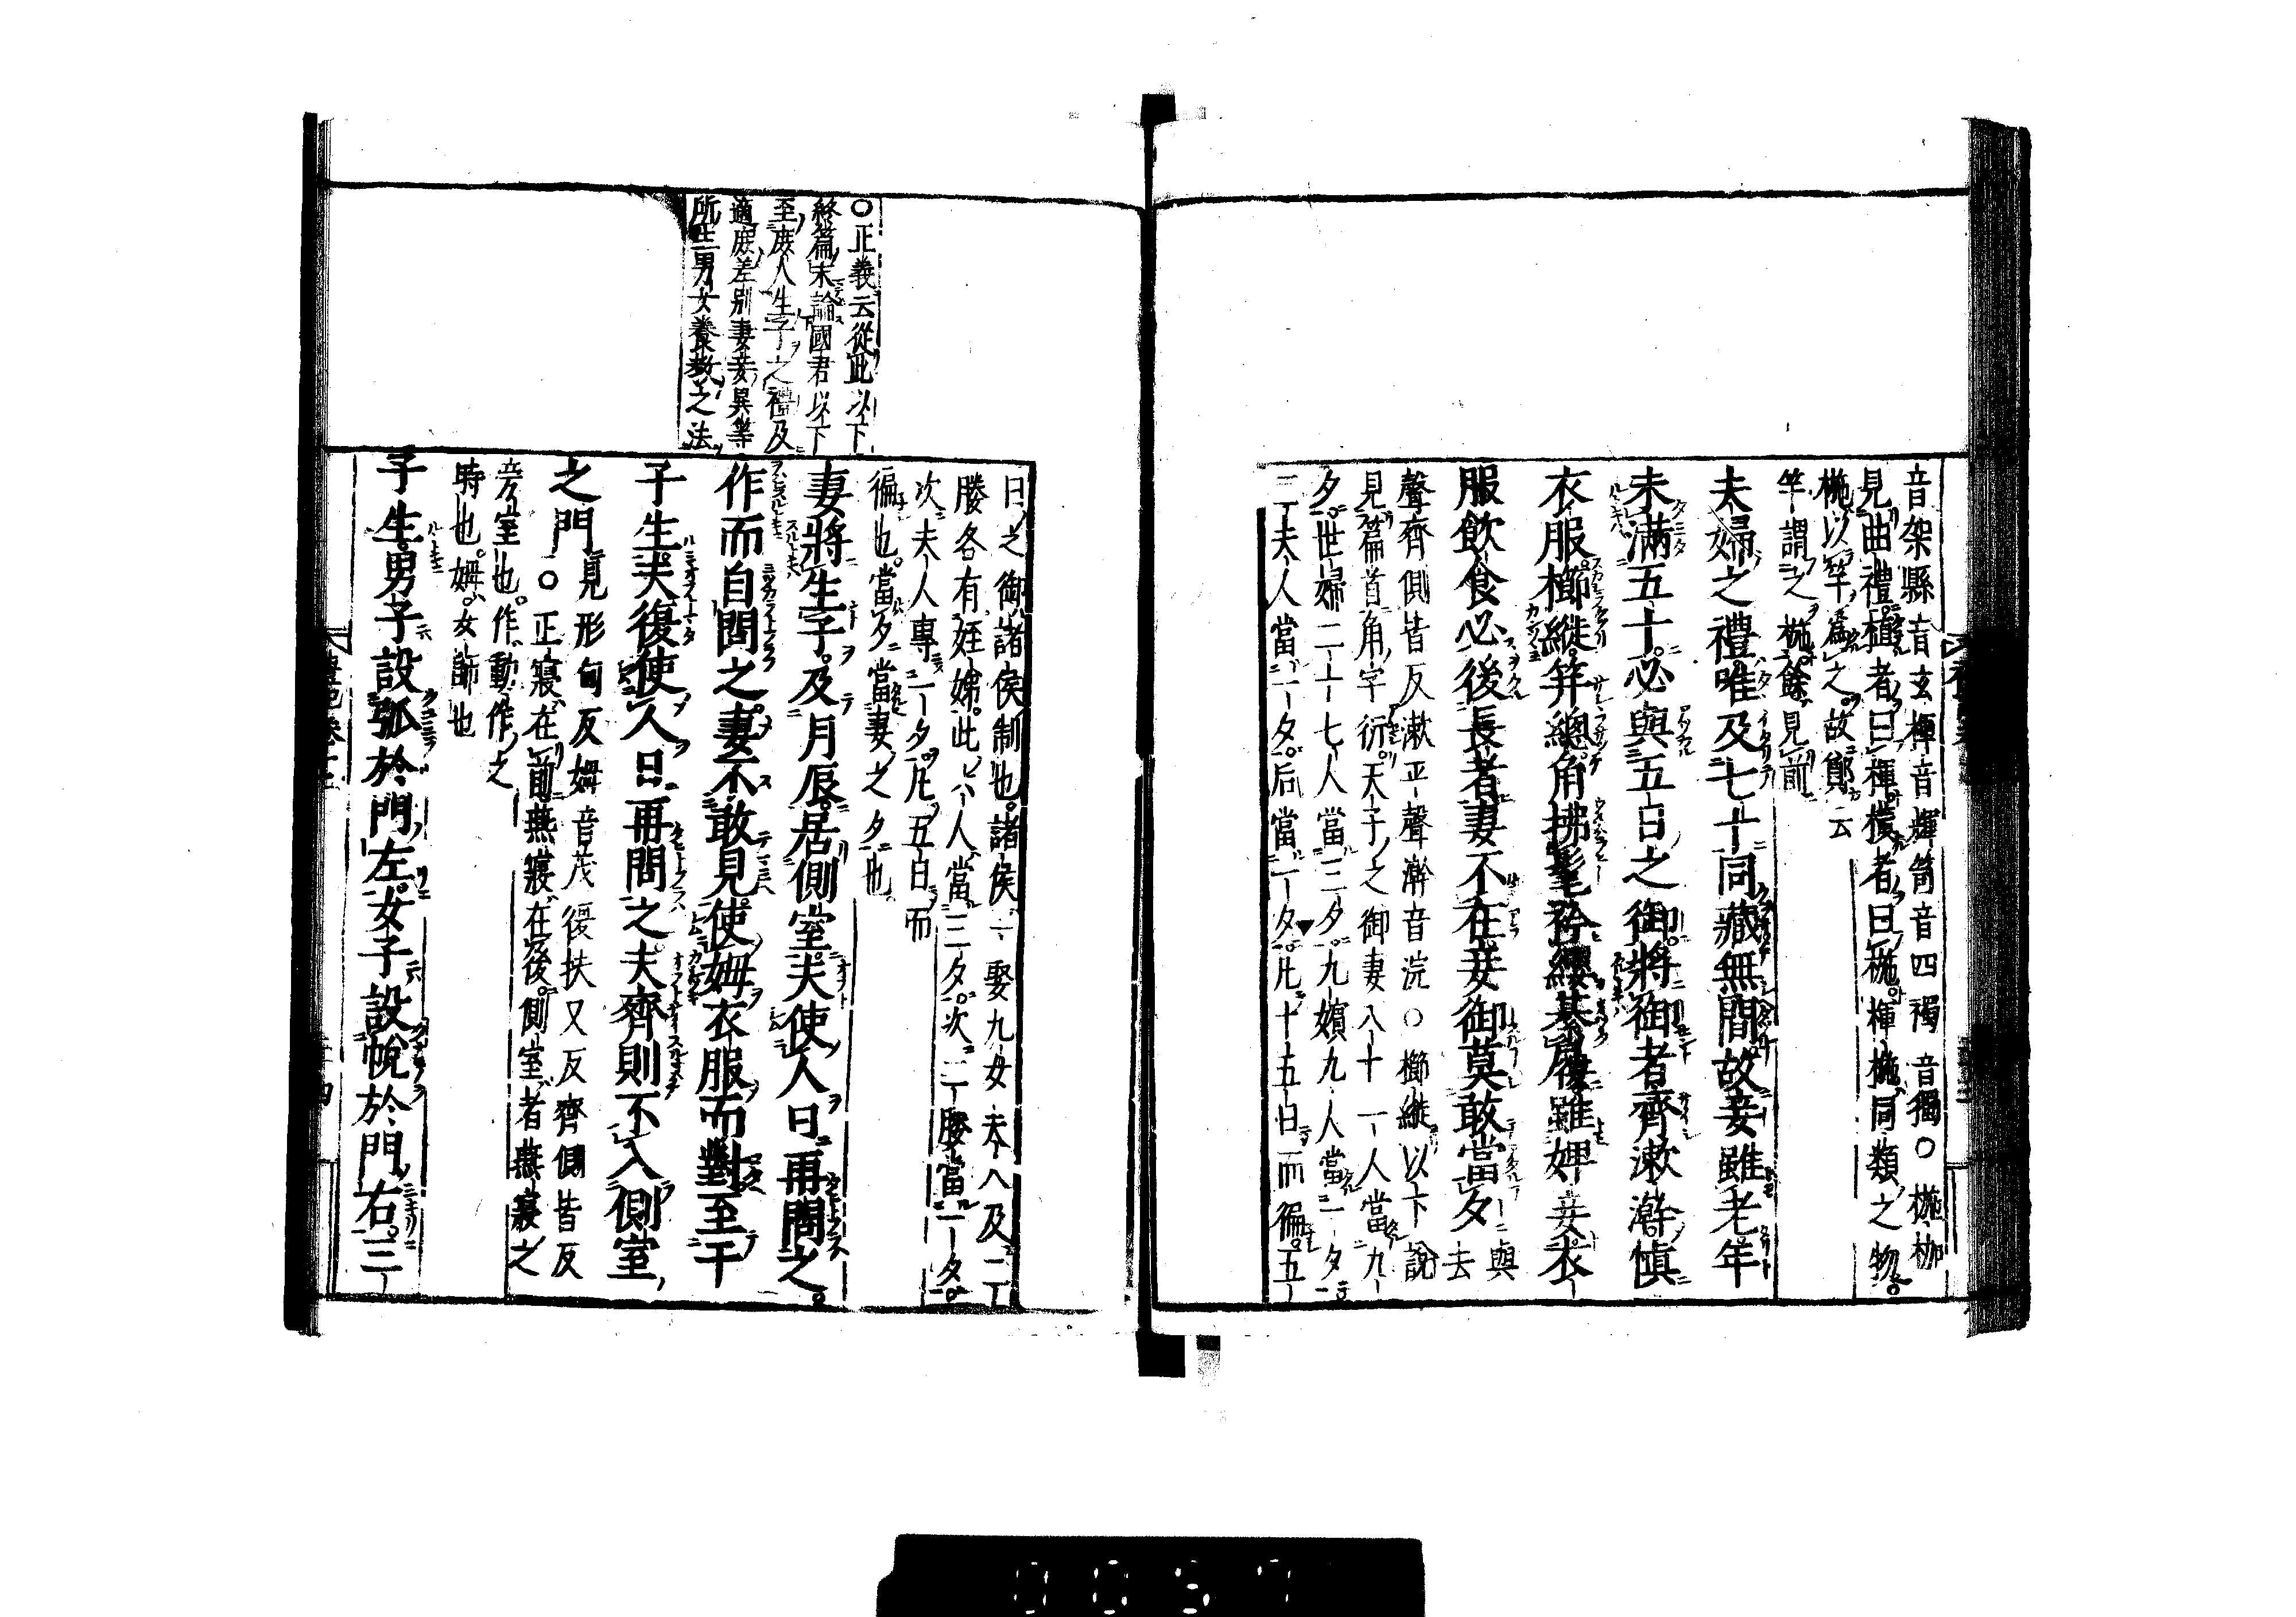 音架縣音玄楎音輝笥音四襡音獨○椸枷
見曲禮植者曰楎橫者曰椸楎椸同類之物
椸以竿爲之故鄭云
竿謂之椸餘見前
夫婦之禮唯及七十同藏無間故妾雖老年
未滿五十必與五日之御將御者齊漱澣愼
衣服櫛縰笄總角拂髦衿纓綦屨雖婢妾衣
服飲食必後長者妻不在妾御莫敢當夕與去
聲齊側皆反漱平聲澣音浣○櫛縰以下說
見篇首角字衍天子之御妻八十一人當九
夕世婦二十七人當三夕九嬪九人當一夕
三夫人當一夕后當一夕凡十五日而徧五
日之御諸侯制也諸侯一娶九女夫人及二
媵各有姪娣此六人當三夕次二媵當一夕
次夫人專一夕凡五日而
徧也當夕當妻之夕也
○正義云從此以下
終篇末論國君以下
至庶人生子之禮及
適庶差別妻妾異等
所生男女養教之法
妻將生子及月辰居側室夫使人日再問之
作而自問之妻不敢見使姆衣服而對至于
子生夫復使人日再問之夫齊則不入側室
之門見形甸反姆音茂復扶又反齊側皆反
○正寢在前燕寢在後側室者燕寢之
旁室也作動作之
時也姆女師也
子生男子設弧於門左女子設帨於門右三
0057